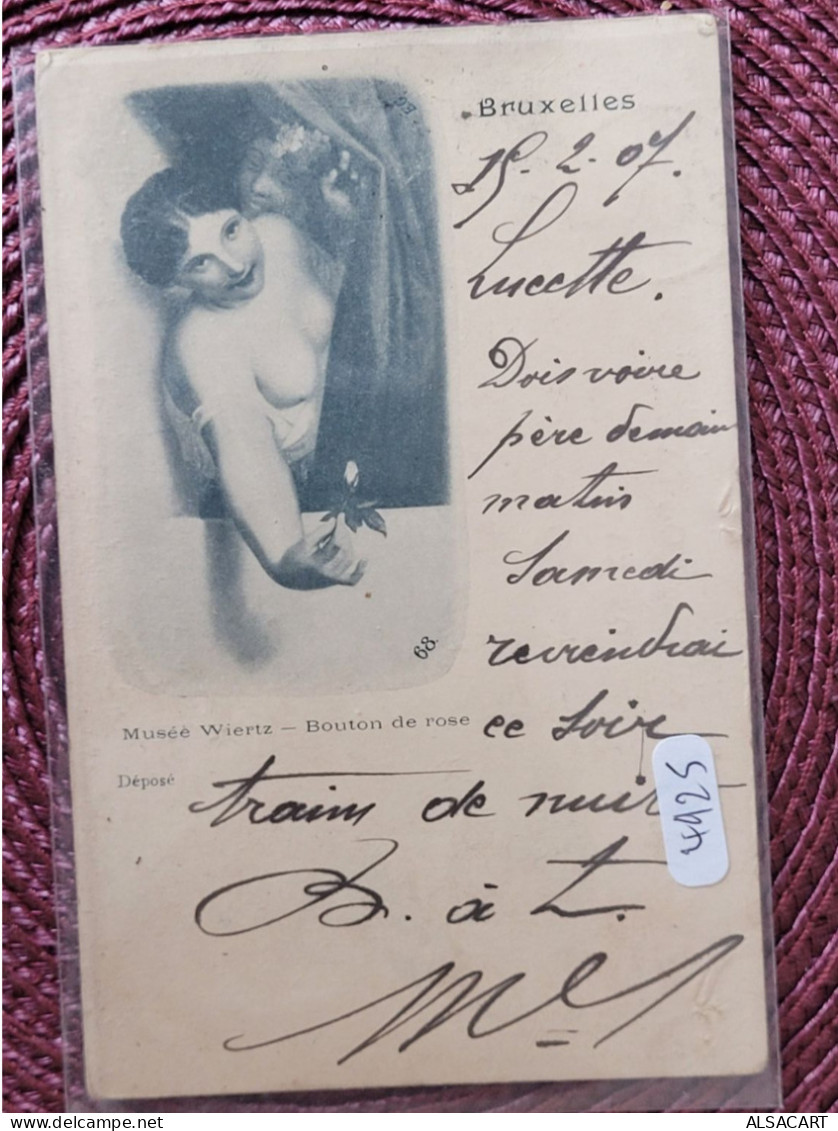 Bruxelles
15-2-07.
Lucette.
Dois voire
père demain
matin
Samedi
reviendrai
ce soir
train de nuit
B. à T.
68.
Muséè Wiertz — Bouton de rose
Déposé
4925
ALSACART